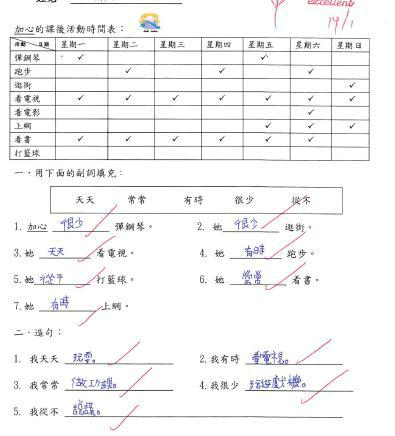 excellent
19/1
加心的課後活動時間表：
活動 日期 星期一 星期二 星期三 星期四 星期五 星期六 星期日
彈鋼琴 ✓ ✓
跑步 ✓ ✓ ✓
逛街 ✓
看電視 ✓ ✓ ✓ ✓ ✓ ✓ ✓
看電影 ✓
上網 ✓ ✓ ✓
看書 ✓ ✓ ✓ ✓ ✓ ✓
打籃球
一．用下面的副詞填充：
天天 常常 有時 很少 從不
1. 加心 很少 彈鋼琴。 2. 她 很少 逛街。
3. 她 天天 看電視。 4. 她 有時 跑步。
5. 她 從不 打籃球。 6. 她 常常 看書。
7. 她 有時 上網。
二．造句：
1. 我天天 玩耍。 2. 我有時 看電視。
3. 我常常 做功課。 4. 我很少 玩遊戲機。
5. 我從不 說謊。